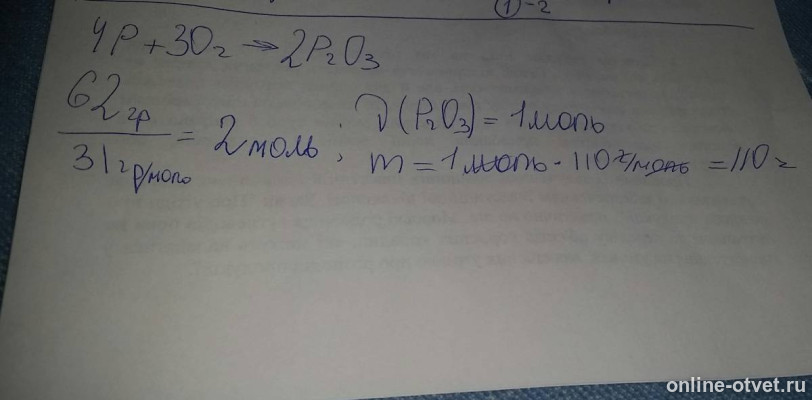 ①-2
4P + 3O₂ → 2P₂O₃
62 гр / 31 гр/моль = 2 моль; ν(P₂O₃) = 1 моль
m = 1 моль · 110 г/моль = 110 г
online-otvet.ru